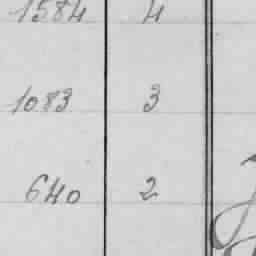 1584 4
1083 3
640 2